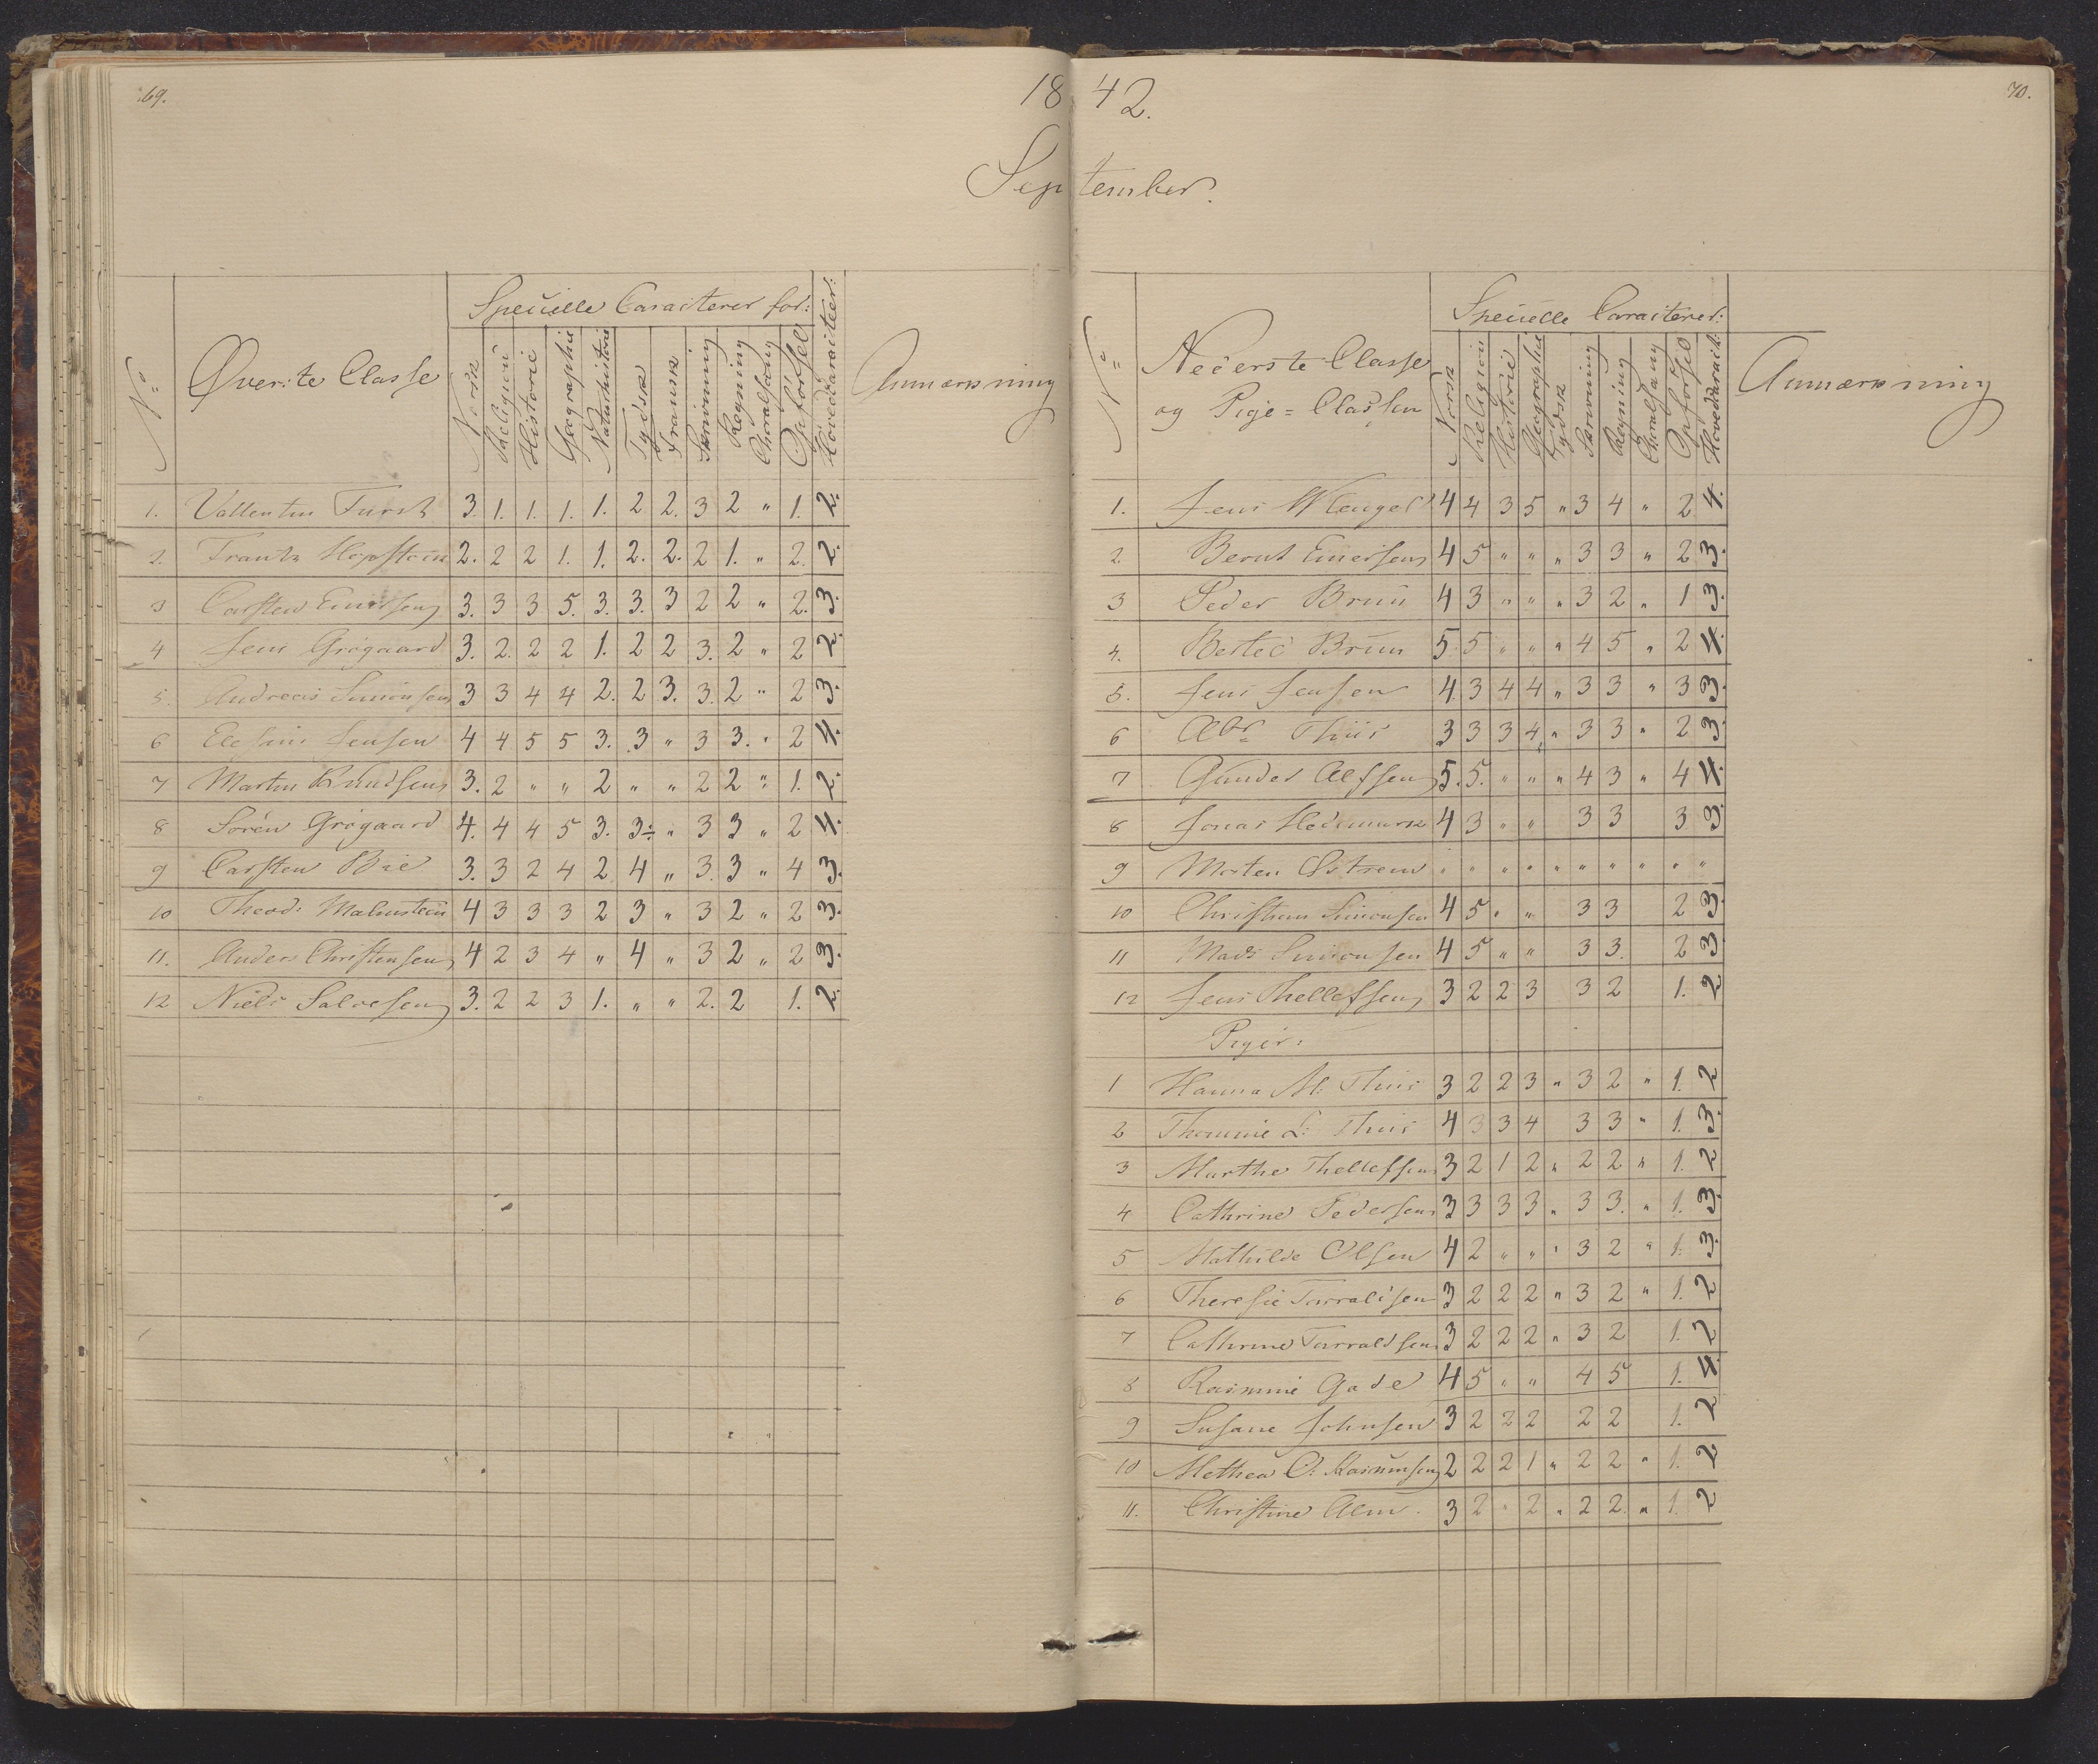 69.
1842.
70.
September.
No
Øverste Classe
Specielle Caracterer for:
Norsk
Religion
Historie
Geographie
Naturhistorie
Tydsk
Fransk
Skrivning
Regning
Choralsang
Opførsel
Hovedkaracteer:
Anmærkning
1. Vallentin Fürst 3. 1. 1. 1. 1. 2 2. 3 2 " 1. 2.
2. Frantz Hopstein 2. 2 2 1. 1. 2. 2. 2 1. " 2. 2.
3 Carsten Einersen 3. 3 3 5. 3. 3. 3 2 2 " 2. 3.
4 Jens Grøgaard 3. 2. 2 2 1. 2 2 3. 2 " 2 2.
5. Andreas Simonsen 3 3 4 4 2. 2 3. 3. 2 " 2 3.
6 Jensen 4 4 5 5 3. 3 " 3 3. " 2 4.
7 Martin Knudsen 3. 2 " " 2 " " 2 2 " 1. 2.
8 Sørén Grøgaard 4. 4 4 5 3. 3÷ " 3 3 " 2 4.
9 Carsten Bie 3. 3 2 4 2 4 " 3. 3 " 4 3.
10 Theod: Malmstein 4 3 3 3 2 3 " 3 2 " 2 3.
11. Anders Christensen 4 2 3 4 " 4 " 3 2 " 2 3.
12 Niels Salvesen 3. 2 2 3 1. " " 2. 2 1. 2.
No
Nederste Classe
og Pige=Classen
Specielle Caracterer:
Norsk
Religion
Historie
Geographie
Tydsk
Skrivning
Regning
Choralsang
Opførsel
Hovedkarakt:
Anmærkning
1. Jens Wengel 4 4 3 5 " 3 4 " 2 4.
2. Bernt Einersen 4 5 " " " 3 3 " 2 3.
3 Peder Bruun 4 3 " " " 3 2 " 1 3.
4. Bertel Bruun 5 5 " " " 4 5 " 2 4.
5. Jens Jensen 4 3 4 4 " 3 3 " 3 3.
6 Abr Thiis 3 3 3 4 " 3 3 " 2 3.
7 Gunder Alfsen 5. 5. " " " 4 3 " 4 4.
8 Jonas Hedemark 4 3 " " 3 3 3 3.
9 Morten Østrem " " " " " " " " " "
10 Christian Simonsen 4 5 " " 3 3 2 3.
11 Mads Simonsen 4 5 " " 3 3. 2 3
12 Jens Thellefsen 3 2 2 3 3 2 1. 2
Piger:
1 Hanna M: Thiis 3 2 2 3 " 3 2 " 1. 2
2 Thomine L: Thiis 4 3 3 4 3 3 " 1. 3.
3 Marthe Thellefsen 3 2 1 2 " 2 2 " 1. 2
4 Cathrine Pedersen 3 3 3 3 " 3 3. " 1. 3.
5 Mathilde Olsen 4 2 " " " 3 2 " 1. 3.
6 Theresie Tarraldsen 3 2 2 2 " 3 2 " 1. 2
7 Cathrine Tarraldsen 3 2 2 2 " 3 2 1. 2
8 Rasmine Gade 4 5 " " 4 5 1. 4.
9 Susane Johnsen 3 2 2 2 2 2 1. 2
10 Methea O: Rasmusen 2 2 2 1 " 2 2 " 1. 2
11. Christine Alm. 3 2 " 2 " 2 2. " 1. 2